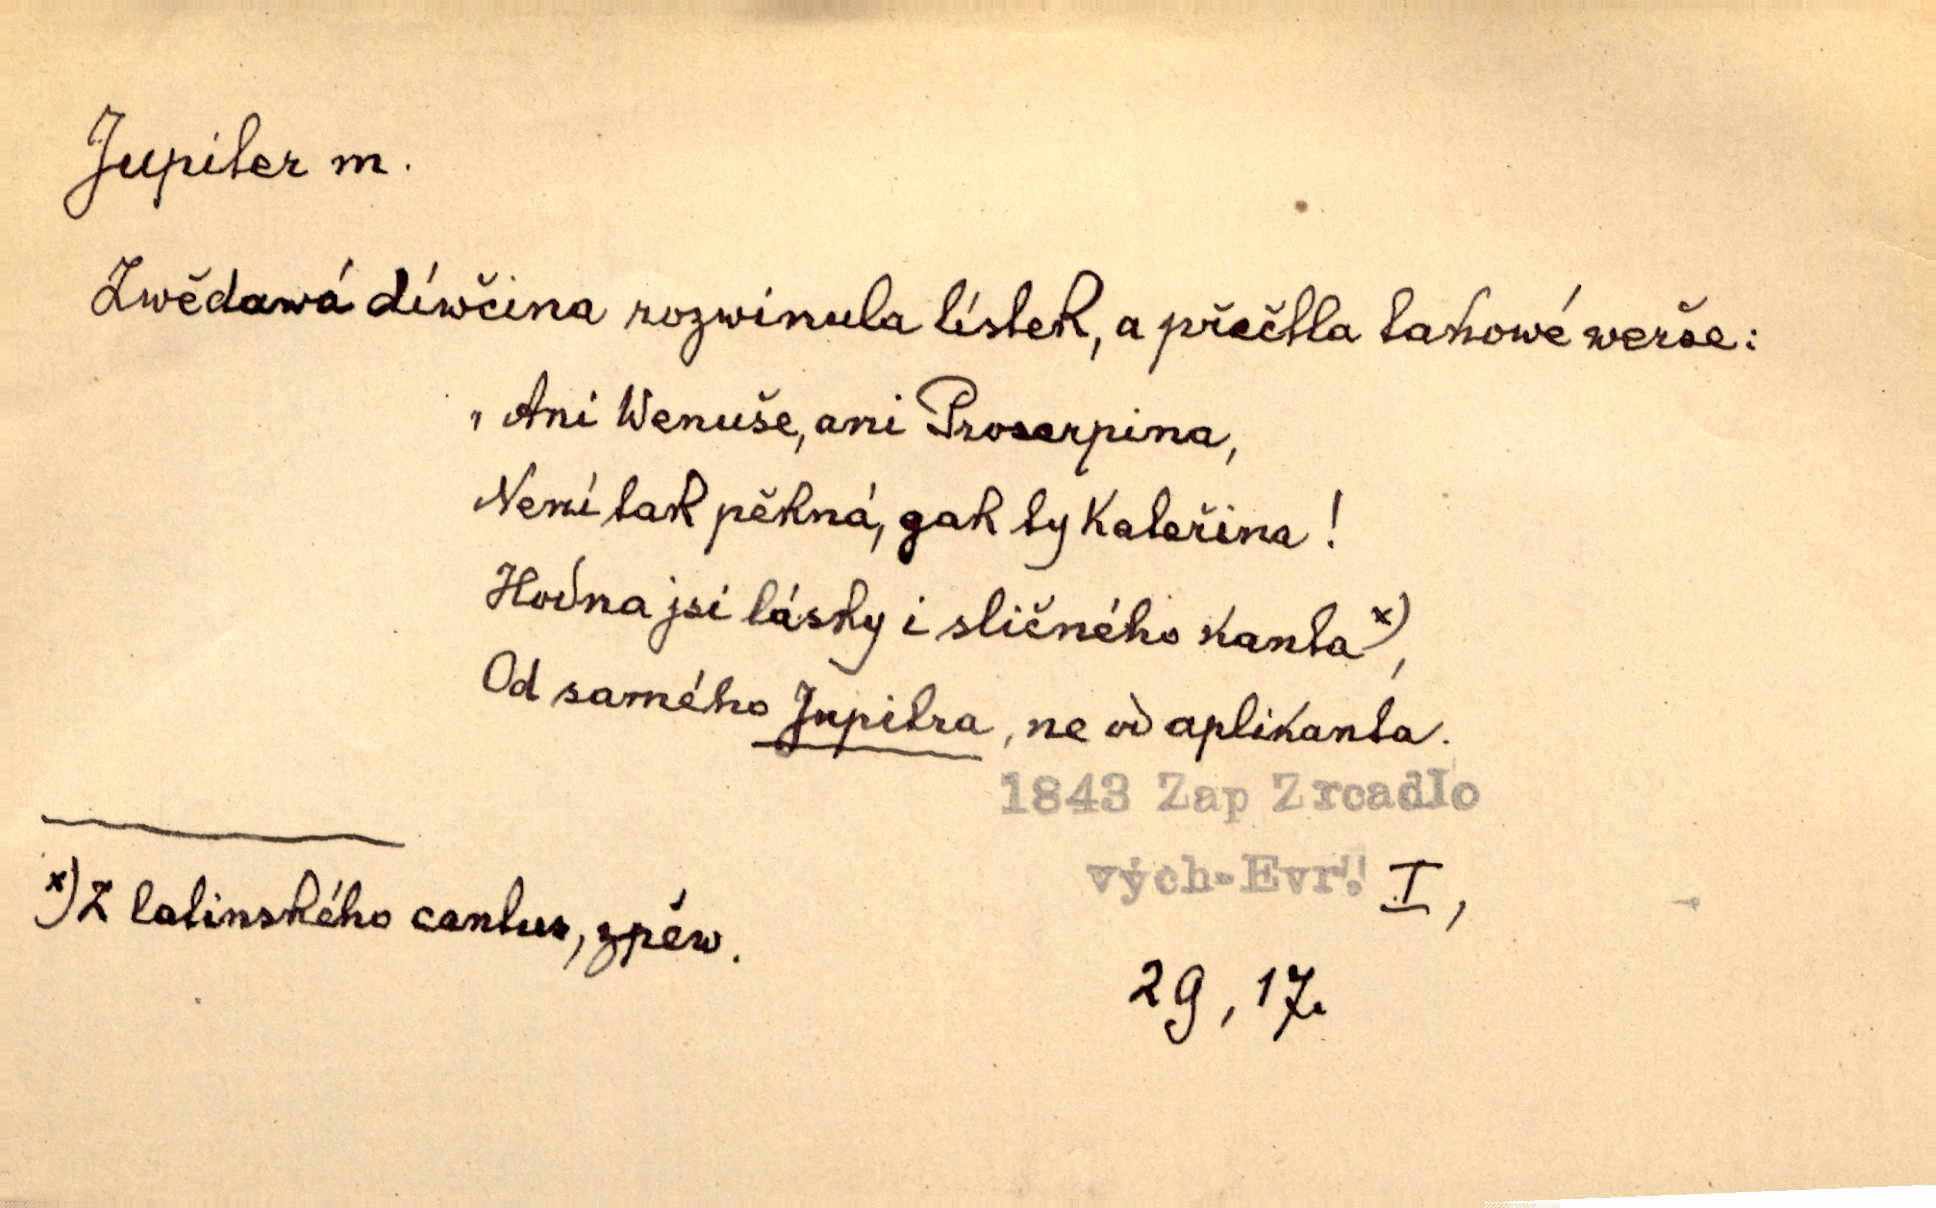 Jupiter m.
Zwědawá díwčina rozwinula lístek, a přečtla takowé werše:
„Ani Wenuše, ani Proserpina,
Není tak pěkná, gak ty Kateřina!
Hodna jsi lásky i sličného kanta x),
Od samého Jupitra, ne od aplikanta.
1843 Zap Zrcadlo
vých-Evr. I,
x) Z latinského cantus, zpěw.
29, 17.